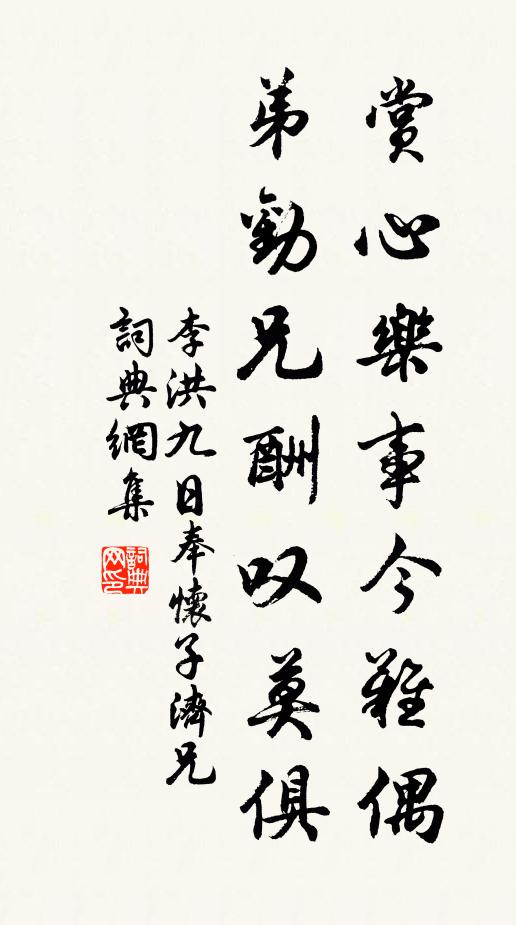 賞心樂事今難偶
弟勸兄酬叹莫俱
李洪九日奉懷子濟兄
詞典網集
詞典网印